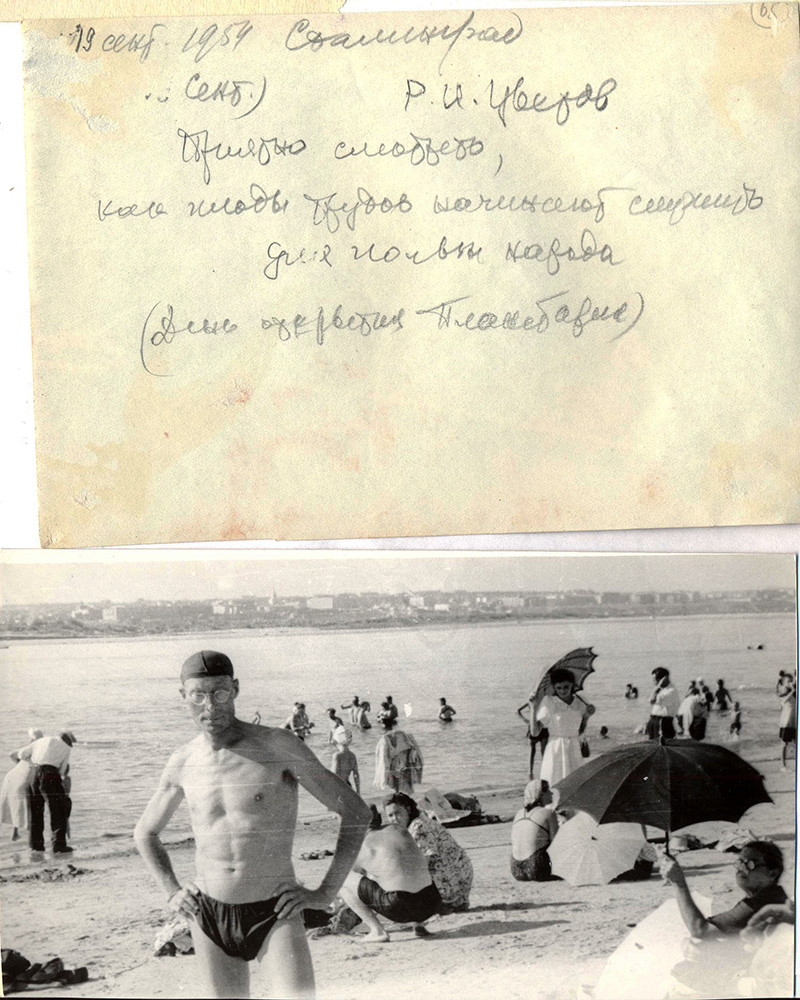 19 сент. 1954 Сталинград
Сент.) Р. И. Цветов
Приятно смотреть,
как плоды трудов начинают служить
для пользы народа
(День открытия Планетария)